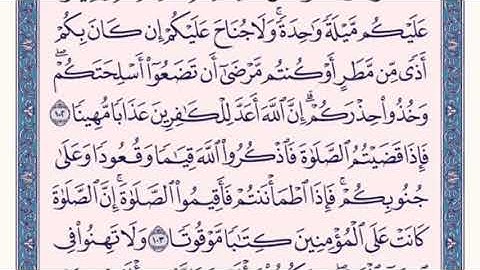 عَلَيۡكُم مَّيۡلَةٗ وَٰحِدَةٗۚ وَلَا جُنَاحَ عَلَيۡكُمۡ إِن كَانَ بِكُمۡ
أَذٗى مِّن مَّطَرٍ أَوۡ كُنتُم مَّرۡضَىٰٓ أَن تَضَعُوٓاْ أَسۡلِحَتَكُمۡۖ
وَخُذُواْ حِذۡرَكُمۡۗ إِنَّ ٱللَّهَ أَعَدَّ لِلۡكَٰفِرِينَ عَذَابٗا مُّهِينٗا ١٠٢
فَإِذَا قَضَيۡتُمُ ٱلصَّلَوٰةَ فَٱذۡكُرُواْ ٱللَّهَ قِيَٰمٗا وَقُعُودٗا وَعَلَىٰ
جُنُوبِكُمۡۚ فَإِذَا ٱطۡمَأۡنَنتُمۡ فَأَقِيمُواْ ٱلصَّلَوٰةَۚ إِنَّ ٱلصَّلَوٰةَ
كَانَتۡ عَلَى ٱلۡمُؤۡمِنِينَ كِتَٰبٗا مَّوۡقُوتٗا ١٠٣ وَلَا تَهِنُواْ فِي